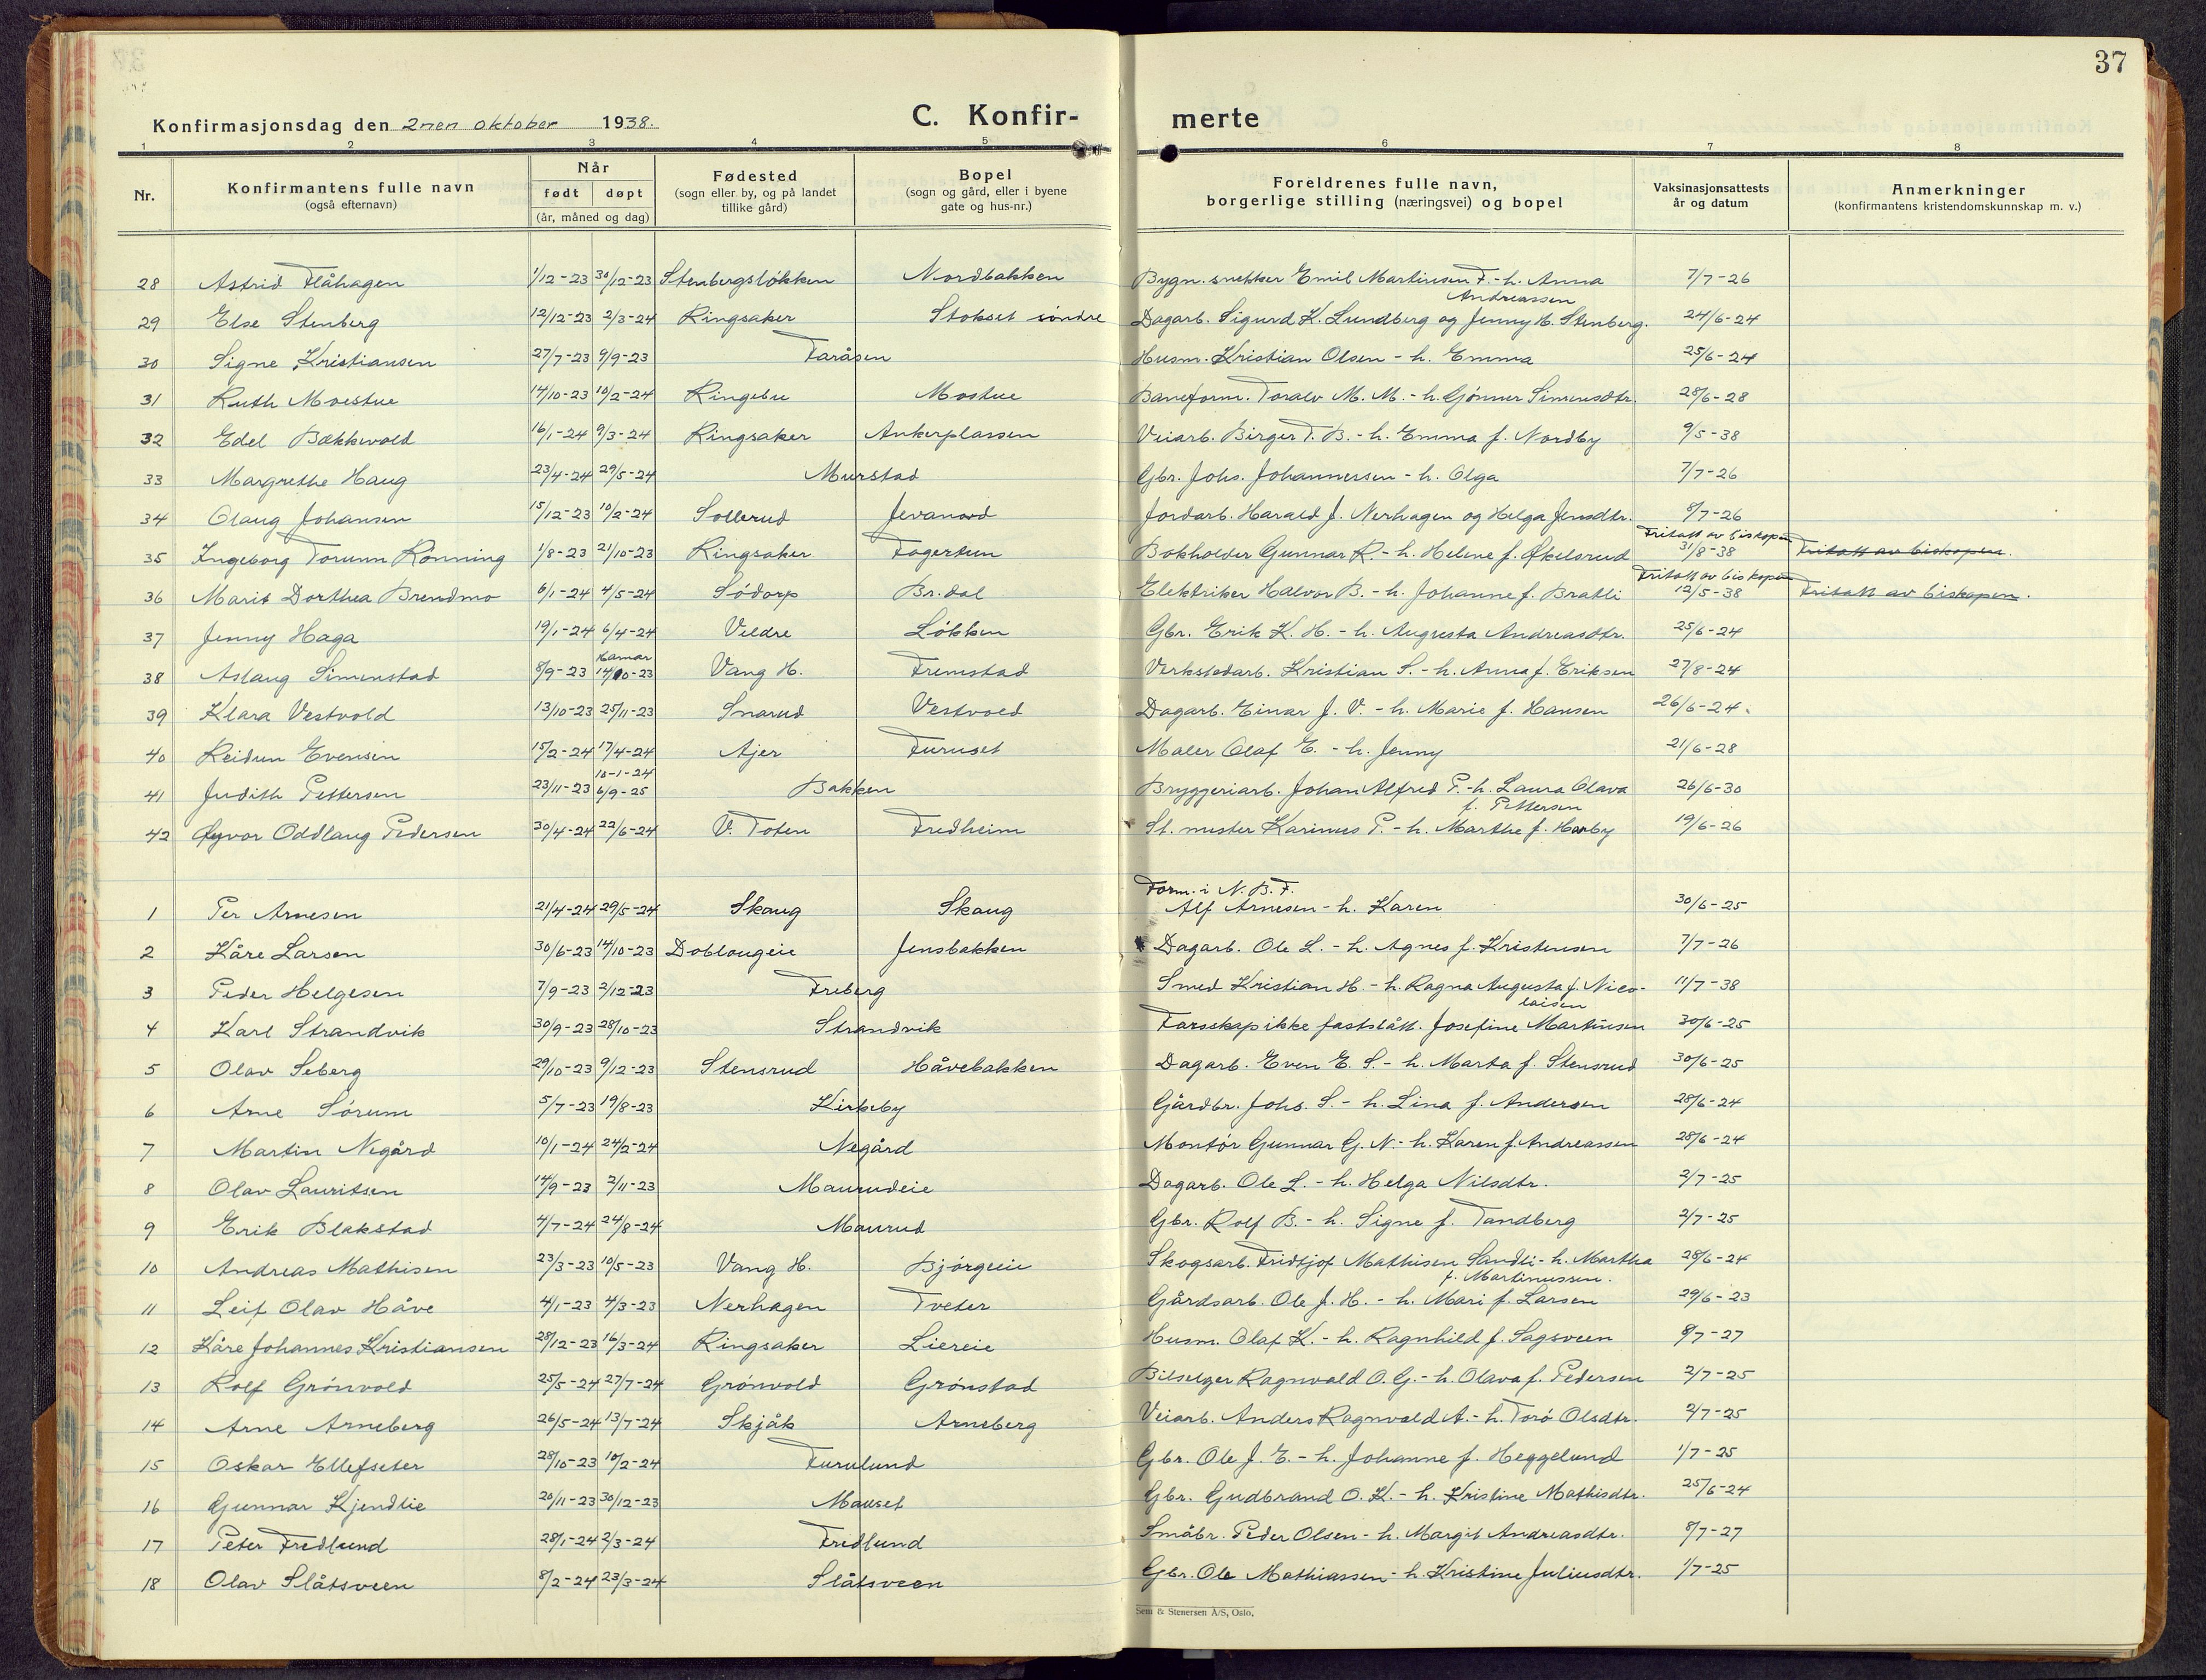 37
Konfirmasjonsdag den 2nen oktober 1938.
C. Konfir-
merte
1 2 3 4 5 6 7 8
Nr.
Konfirmantens fulle navn
(også efternavn)
Når
født døpt
(år, måned og dag)
Fødested
(sogn eller by, og på landet
tillike gård)
Bopel
(sogn og gård, eller i byene
gate og hus-nr.)
Foreldrenes fulle navn,
borgerlige stilling (næringsvei) og bopel
Vaksinasjonsattests
år og datum
Anmerkninger
(konfirmantens kristendomskunnskap m. v.)
28 Astrid Flåhagen 1/12-23 30/12-23 Stenbergsløkken Nordbakken Bygn.snekker Emil Martinsen F.-h. Anna 7/7-26
Andreassen
29 Else Stenberg 12/12-23 2/3-24 Ringsaker Stokset söndre Dagarb. Sigurd K. Lundberg og Jenny H. Stenberg. 24/6-24
30 Signe Kristiansen 27/7-23 9/9-23 Faråsen Husm. Kristian Olsen - h. Emma 25/6-24
31 Ruth Moestue 14/10-23 10/2-24 Ringebu Mostue Baneform. Toralv M. M. - h. Gønner Simensdtr. 28/6-28
32 Edel Bækkevold 16/1-24 9/3-24 Ringsaker Ankerplassen Veiarb. Birger T. B. - h. Emma f. Nordby 9/5-38
33 Margrethe Haug 23/4-24 29/5-24 Murstad Gbr. Johs. Johannessen - h. Olga 7/7-26
34 Olaug Johansen 15/12-23 10/2-24 Sollerud Jevanord Jordarb. Harald J. Nerhagen og Helga Jensdtr. 8/7-26
Fritatt av biskopen
35 Ingeborg Torunn Rønning 1/8-23 21/10-23 Ringsaker Fagertun Bokholder Gunnar R. - h. Helene f. Økelsrud 31/8-38 Fritatt av biskopen.
Fritatt av biskopen
36 Marit Dorthea Brendmo 6/1-24 4/5-24 Södorp Br.dal Elektriker Halvor B. - h. Johanne f. Bratli 12/5-38 Fritatt av biskopen.
37 Jenny Haga 19/1-24 6/4-24 Veldre Løkken Gbr. Erik K. H. - h. Augusta Andreasdtr. 25/6-24
Hamar
38 Aslaug Simenstad 8/9-23 14/10-23 Vang H. Fremstad Verkstedarb. Kristian S. - h. Anna f. Eriksen 27/8-24
39 Klara Vestvold 13/10-23 25/11-23 Snarud Vestvold Dagarb. Einar J. V. - h. Marie f. Hansen 26/6-24.
40 Reidun Evensen 15/2-24 17/4-24 Ajer Furuset Maler Olaf E. - h. Jenny 21/6-28
10-1-24
41 Judith Pettersen 23/11-23 6/9-25 Bakken Bryggeriarb. Johan Alfred P. - h. Laura Olava 26/6-30
f. Pettersen
42 Øyvor Oddlaug Pedersen 30/4-24 22/6-24 V. Toten Fredheim St. mester Karinus P. - h. Marthe f. Harby 19/6-26
Form. i N. B. F.
1 Per Arnesen 21/4-24 29/5-24 Skaug Skaug Alf Arnesen - h. Karen 30/6-25
2 Kåre Larsen 30/6-23 14/10-23 Doblougeie Jensbakken Dagarb. Ole L. - h. Agnes f. Kristensen 7/7-26
3 Peder Helgesen 7/9-23 2/12-23 Freberg Smed Kristian H. - h. Ragna Augusta f. Nico- 11/7-38
laisen
4 Karl Strandvik 30/9-23 28/10-23 Strandvik Farsskap ikke fastslått. Josefine Martinsen 30/6-25
5 Olav Seberg 29/10-23 9/12-23 Stensrud Håvebakken Dagarb. Even E. S. - h. Marta f. Stensrud 30/6-25
6 Arne Sørum 5/7-23 19/8-23 Kirkeby Gårdbr. Johs. S. - h. Lina f. Andersen 28/6-24
7 Martin Negård 10/1-24 24/2-24 Negård Montör Gunnar G. N. - h. Karen f. Andreassen 28/6-24
8 Olav Lauritsen 14/9-23 2/11-23 Maurudeie Dagarb. Ole L. - h. Helga Nilsdtr. 2/7-25
9 Erik Blakstad 4/7-24 24/8-24 Maurud Gbr. Rolf B. - h. Signe f. Tandberg 2/7-25
10 Andreas Mathisen 23/3-23 10/5-23 Vang H. Bjørgeeie Skogsarb. Fridtjof Mathisen Sandli - h. Martha 28/6-24
f. Martinussen.
11 Leif Olav Håve 4/1-23 4/3-23 Nerhagen Tveter Gårdsarb. Ole J. H. - h. Mari f. Larsen 29/6-23
12 Kåre Johannes Kristiansen 28/12-23 16/3-24 Ringsaker Liereie Husm. Olaf K. - h. Ragnhild f. Sagsveen 8/7-27
13 Rolf Grønvold 25/5-24 27/7-24 Grønvold Grønstad Bilselger Ragnvald O. G. - h. Olava f. Pedersen 2/7-25
14 Arne Arneberg 26/5-24 13/7-24 Skjåk Arneberg Veiarb. Anders Ragnvald A. - h. Torø Olsdtr. 2/7-25
15 Oskar Ellefseter 28/10-23 10/2-24 Furulund Gbr. Ole J. E. - h. Johanne f. Heggelund 1/7-25
16 Gunnar Kjendlie 20/11-23 30/12-23 Mauset Gbr. Gudbrand O. K. - h. Kristine Mathisdtr. 25/6-24
17 Peter Fredlund 28/1-24 2/3-24 Fredlund Småbr. Peder Olsen - h. Margit Andreasdtr. 8/7-27
18 Olav Slåtsveen 8/2-24 23/3-24 Slåtsveen Gbr. Ole Mathiassen - h. Kristine Juliusdtr. 1/7-25
Sem & Stenersen A/S, Oslo.